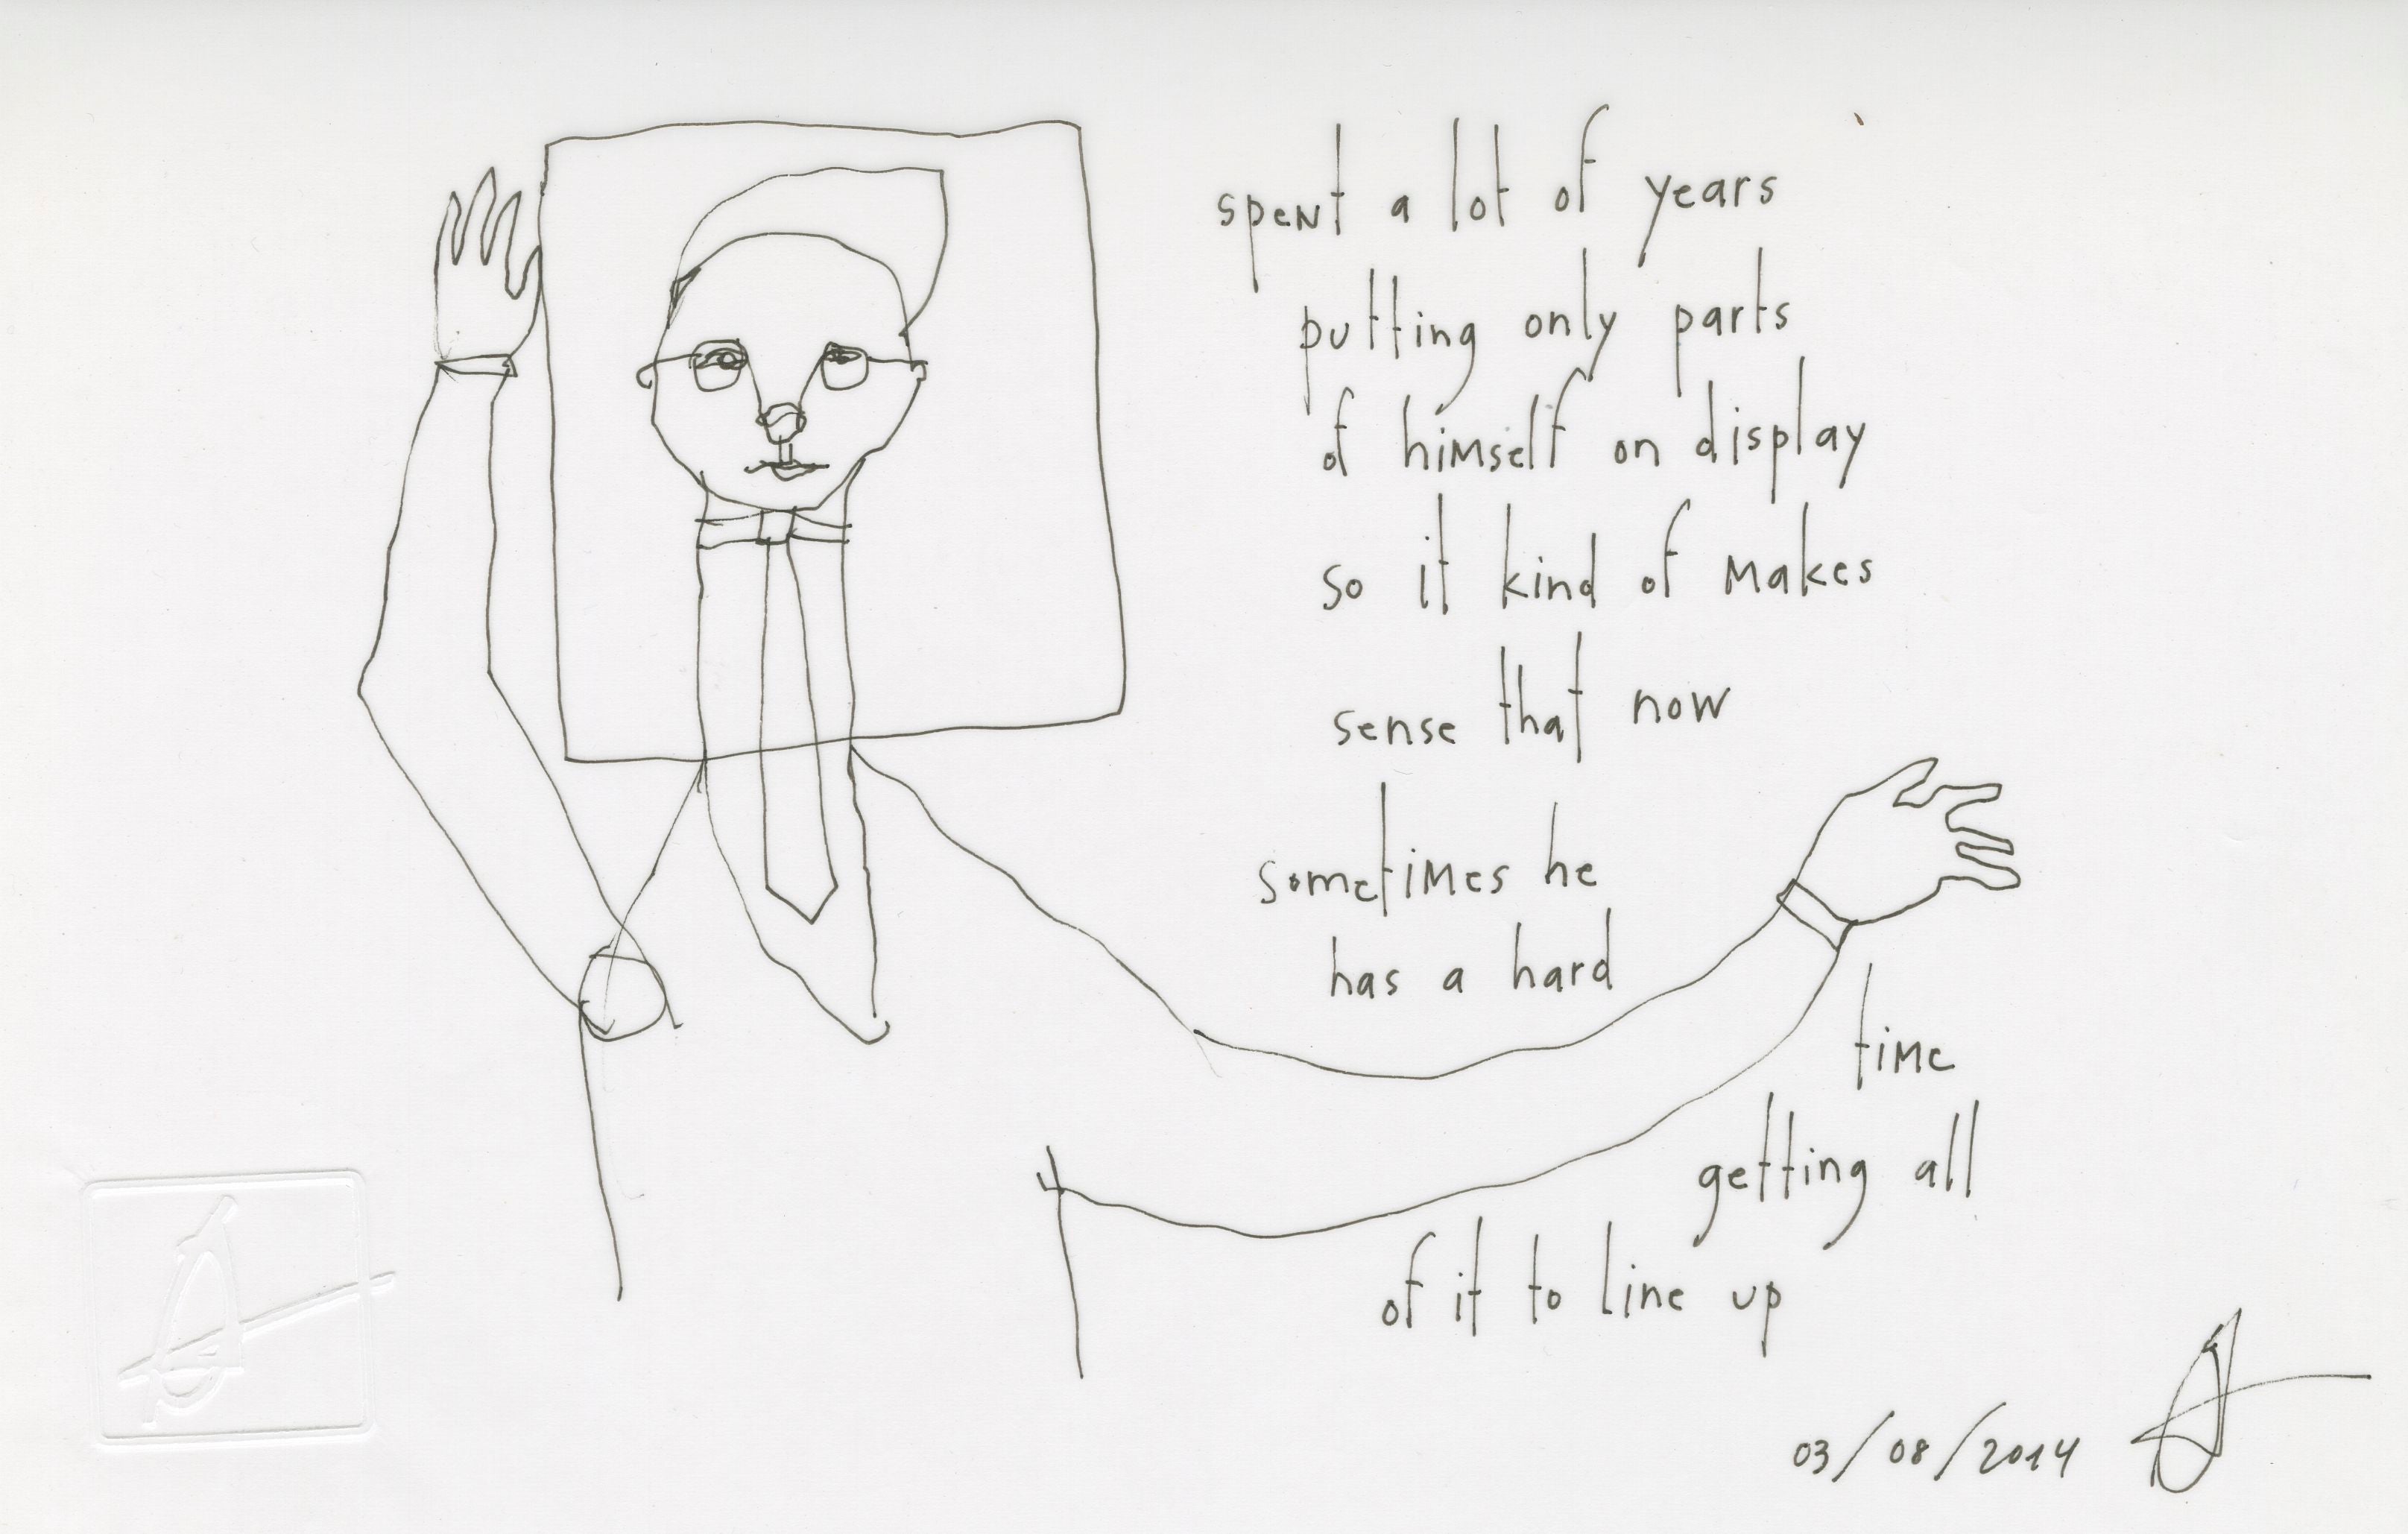 spent a lot of years
putting only parts
of himself on display
so it kind of makes
sense that now
sometimes he
has a hard
time
getting all
of it to line up
03/08/2014